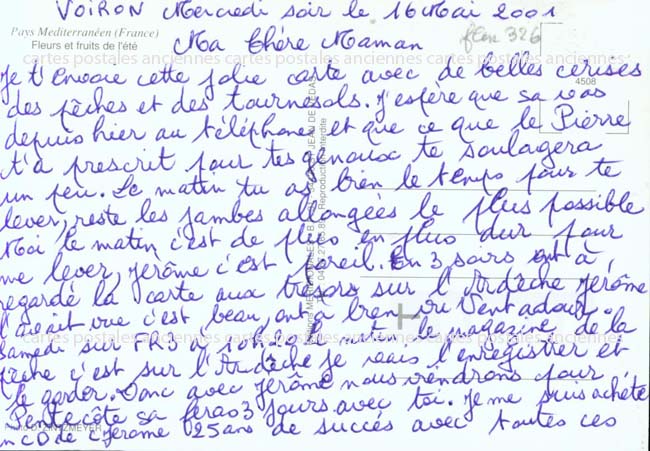 VOIRON Mercredi soir le 16 Mai 2001
Pays Mediterranéen (France)
Fleurs et fruits de l'été
fleu 326
Ma Chère Maman
cartes postales anciennes cartes postales anciennes cartes postales anciennes
Je t'Envoie cette jolie carte avec de belles cerises
4508
des pêches et des tournesols. J'espère que sa vas
depuis hier au téléphone et que ce que le Pierre
t'a prescrit pour tes genoux te soulagera
un peu. Le matin tu as bien le temps pour te
lever, reste les jambes allongées le plus possible
Moi le matin c'est de plus en plus dur pour
me lever, Jérôme c'est pareil. En 3 soirs ont à
regardé la carte aux trésors sur l'Ardèche Jérôme
l'avait vue c'est beau, ont à bien vu Ventadour.
cartes postales anciennes cartes postales anciennes cartes postales anciennes
samedi sur FR3 à matin le magazine de la
pêche c'est sur l'Ardèche je vais l'enregistrer et
le garder. Donc avec Jérôme nous viendrons pour
Pentecôte sa feras 3 jours avec toi. Je me suis achété
un CD de C. Jérome 25 ans de succés avec toutes ces
Reproduction interdite